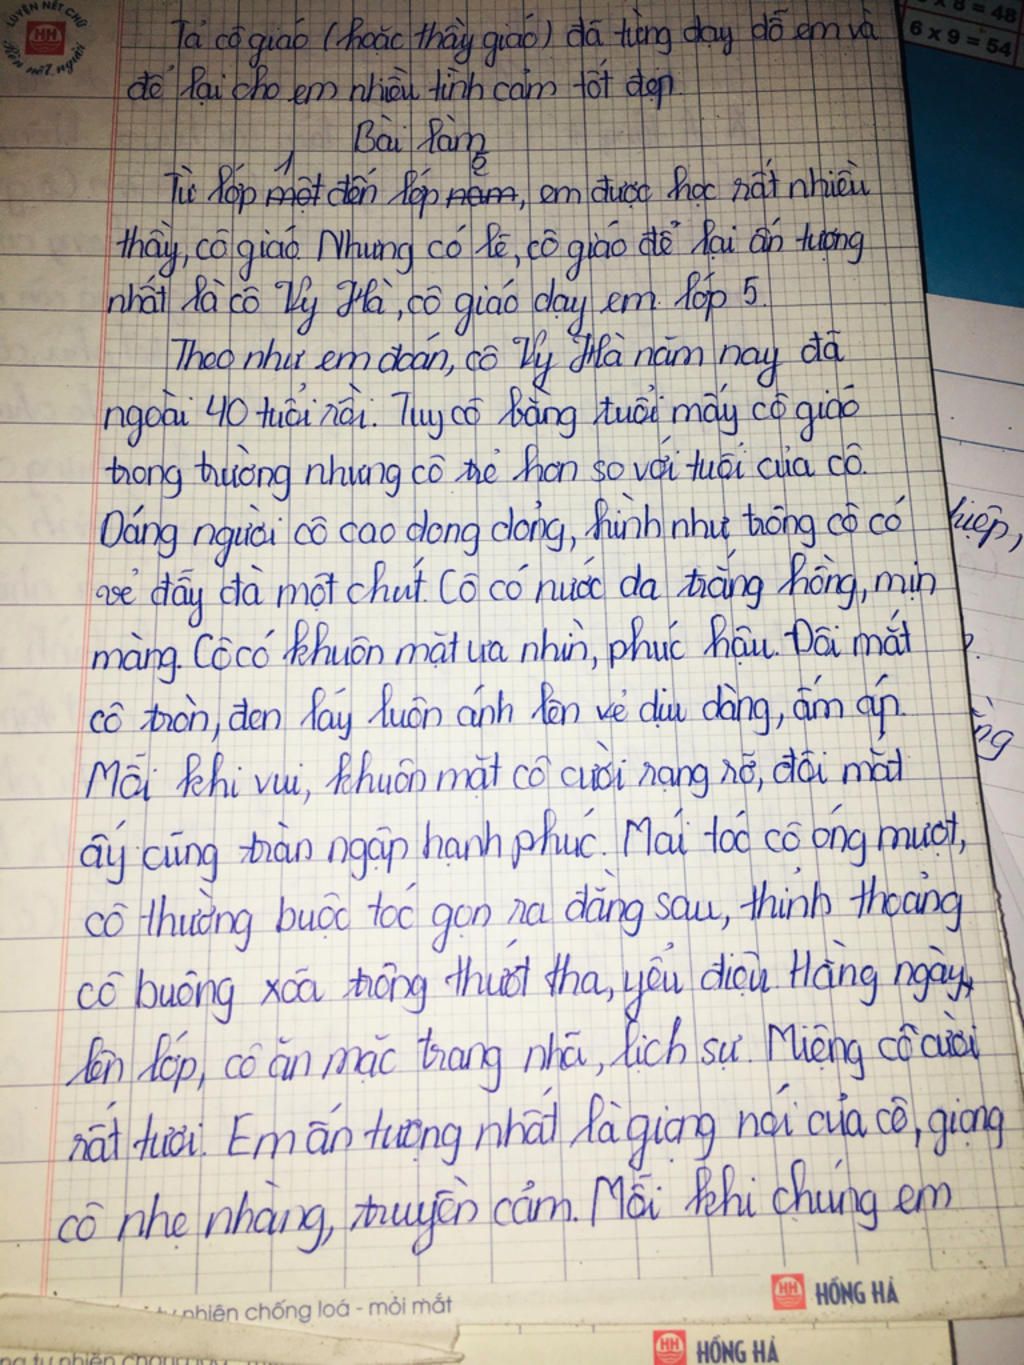 LUYỆN NÉT CHỮ
HH
Rèn nết người
Tả cô giáo (hoặc thầy giáo) đã từng dạy dỗ em và
để lại cho em nhiều tình cảm tốt đẹp.
Bài làm
1 5
Từ lớp một đến lớp năm, em được học rất nhiều
thầy, cô giáo. Nhưng có lẽ, cô giáo để lại ấn tượng
nhất là cô Vy Hà, cô giáo dạy em lớp 5.
Theo như em đoán, cô Vy Hà năm nay đã
ngoài 40 tuổi rồi. Tuy cô bằng tuổi mấy cô giáo
trong trường nhưng cô trẻ hơn so với tuổi của cô.
Dáng người cô cao dong dỏng, hình như trông cô có
vẻ đẫy đà một chút. Cô có nước da trắng hồng, mịn
màng. Cô có khuôn mặt ưa nhìn, phúc hậu. Đôi mắt
cô tròn, đen láy luôn ánh lên vẻ dịu dàng, ấm áp.
Mỗi khi vui, khuôn mặt cô cười rạng rỡ, đôi mắt
ấy cũng tràn ngập hạnh phúc. Mái tóc cô óng mượt,
cô thường buộc tóc gọn ra đằng sau, thỉnh thoảng
cô buông xõa trông thướt tha, yểu điệu. Hằng ngày,
lên lớp, cô ăn mặc trang nhã, lịch sự. Miệng cô cười
rất tươi. Em ấn tượng nhất là giọng nói của cô, giọng
cô nhẹ nhàng, truyền cảm. Mỗi khi chúng em
tự nhiên chống loá - mỏi mắt
HH HỒNG HÀ
HH HỒNG HÀ
x 8 = 48
6 x 9 = 54
hiệp,